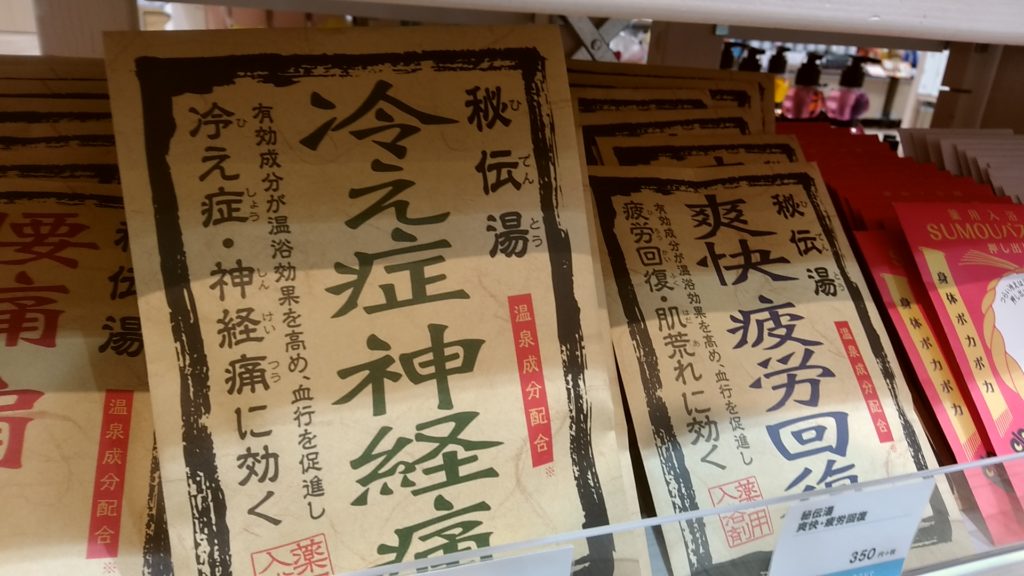 腰痛
秘伝湯
温泉成分配合
※
秘伝湯
ひ
でん
とう
冷え症神経痛
温泉成分配合
※
有効成分が温浴効果を高め、血行を促進し
冷え症・神経痛に効く
ひ
しょう
しん
けい
つう
薬
入
秘伝湯
ひ
でん
とう
爽快疲労回復
温泉成分配合
※
有効成分が温浴効果を高め、血行を促進し
疲労回復・肌荒れに効く
薬用
入浴剤
秘伝湯
爽快・疲労回復
350円+税
身体ポカポカ
薬用入浴
SUMOUバス
押し出
身体ポカポカ